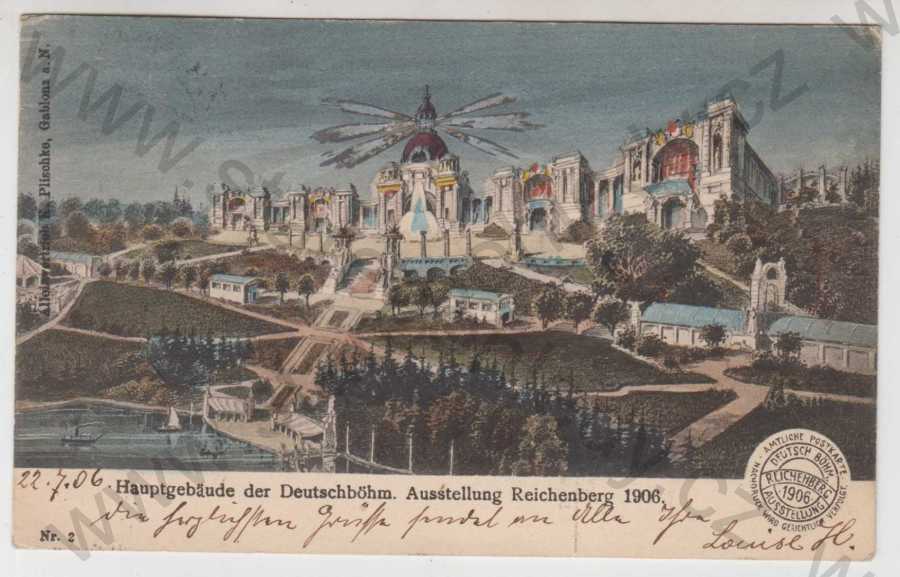 Alleinvertrieb K. Plischke, Gablonz a. N.
22.7.06.
Hauptgebäude der Deutschböhm. Ausstellung Reichenberg 1906.
die herzlichsten Grüsse sendet an Alle Ihre
Louise H.
Nr. 2
AMTLICHE POSTKARTE
NACHDRUCK WIRD GERICHTLICH VERFOLGT.
DEUTSCH BÖHM.
REICHENBERG
1906
AUSSTELLUNG